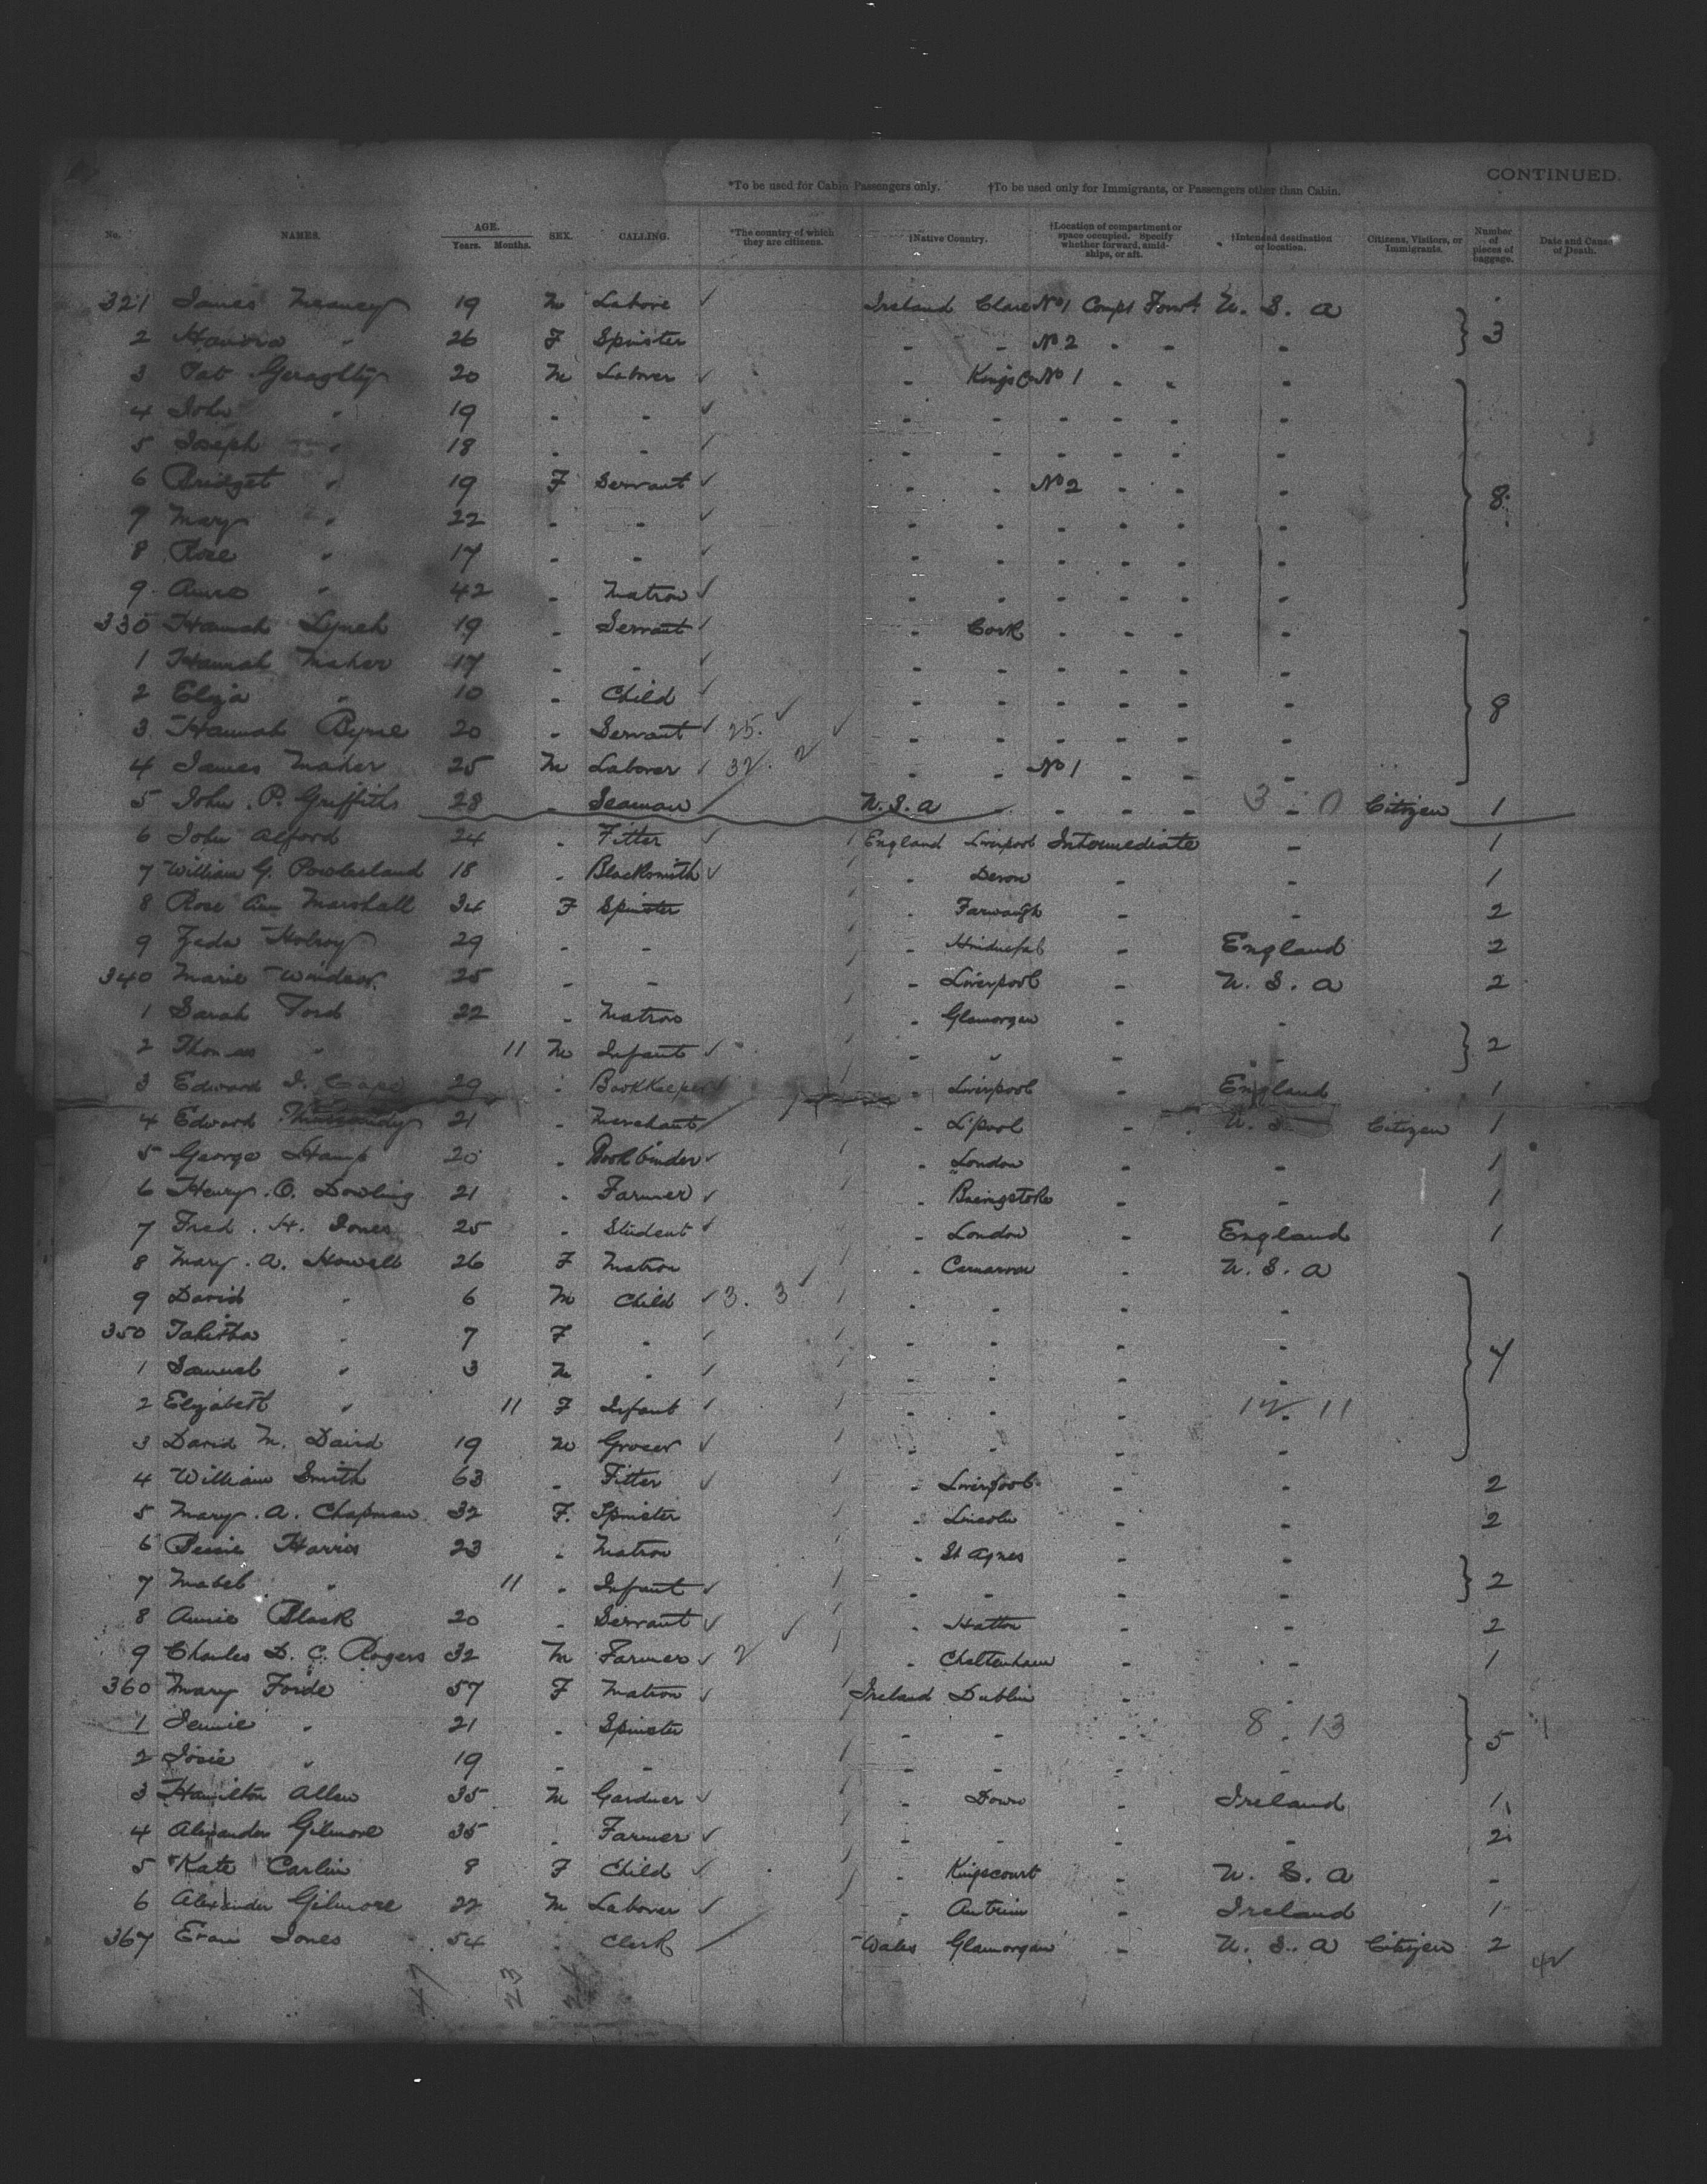 CONTINUED.
*To be used for Cabin Passengers only. †To be used only for Immigrants, or Passengers other than Cabin.
No. NAMES. AGE. Years. Months. SEX. CALLING. *The country of which they are citizens. †Native Country. †Location of compartment or space occupied. Specify whether forward, amidships, or aft. †Intended destination or location. Citizens, Visitors, or Immigrants. Number of pieces of baggage. Date and Cause of Death.
321 James 19 M Labore Ireland Clare No 1 Compt Forwd U. S. A
2 " 26 F Spinster - - No 2 - - - 3
3 Pat Geraghty 20 M Laborer - Kings Co No 1 - - -
4 John " 19 - - - - - - - -
5 Joseph " 18 - - - - - - - -
6 Bridget " 19 F Servant - - No 2 - - - 8
7 Mary " 22 - - - - - - - -
8 Rose " 17 - - - - - - - -
9 Anne " 42 - Matron - - - - - -
330 Hannah Lynch 19 - Servant - Cork - - - -
1 Hannah Maher 17 - - - - - - - -
2 Eliza " 10 - Child - - - - - - 8
3 Hannah Byrne 20 - Servant 25. - - - - - -
4 James Maher 25 M Laborer 32. 2 - - No 1 - - -
5 John . P. Griffiths 28 - Seaman U. S. A - - - 3 - 0 Citizen 1
6 John Alford 24 - Fitter England Liverpool Intermediate - 1
7 William G. Powlesland 18 - Blacksmith - Devon - - 1
8 Rose Ann Marshall 34 F Spinster - - - 2
9 29 - - - - England 2
340 Marie Windsor 25 - - - Liverpool - U. S. A 2
1 Sarah Ford 22 - Matron - Glamorgan - -
2 Thomas " 11 M Infant - " - - 2
3 Edward J. Cape 29 - Bookkeeper - Liverpool - England 1
4 Edward 21 - Merchant - L'pool - U. S. Citizen 1
5 George Stamp 20 - Bookbinder - London - - 1
6 Henry . O. Dowling 21 - Farmer - - - 1
7 Fred . H. Jones 25 - Student - London - England 1
8 Mary . A. Howell 26 F Matron - Carnarvon - U. S. A
9 David " 6 M Child 3. 3 - - - -
350 Tabitha " 7 F - - - - -
1 Samuel " 3 M - - - - - 4
2 Elizabeth " 11 F Infant - - - 12. 11
3 David M. 19 M Grocer - - - -
4 William Smith 63 - Fitter - Liverpool - - 2
5 Mary . A. Chapman 32 F. Spinster - Lincoln - - 2
6 Bessie Harris 23 - Matron - St Agnes - -
7 Mabel " 11 - Infant - - - - 2
8 Annie Black 20 - Servant - Hatton - - 2
9 Charles D. C. Rogers 32 M Farmer 2 - Cheltenham - - 1
360 Mary Forde 57 F Matron Ireland Dublin - -
1 Jennie " 21 - Spinster - - - 8 - 13 5
2 Josie " 19 - - - - - -
3 Hamilton Allen 35 M Gardner - Down - Ireland 1
4 Alexander Gilmore 35 - Farmer - - - - 2
5 Kate Carlin 8 F Child - Kingscourt - U. S. A -
6 Alexander Gilmore 22 M Laborer - Antrim - Ireland 1
367 Evan Jones 54 Clerk Wales Glamorgan - U. S. A Citizen 2
47 23